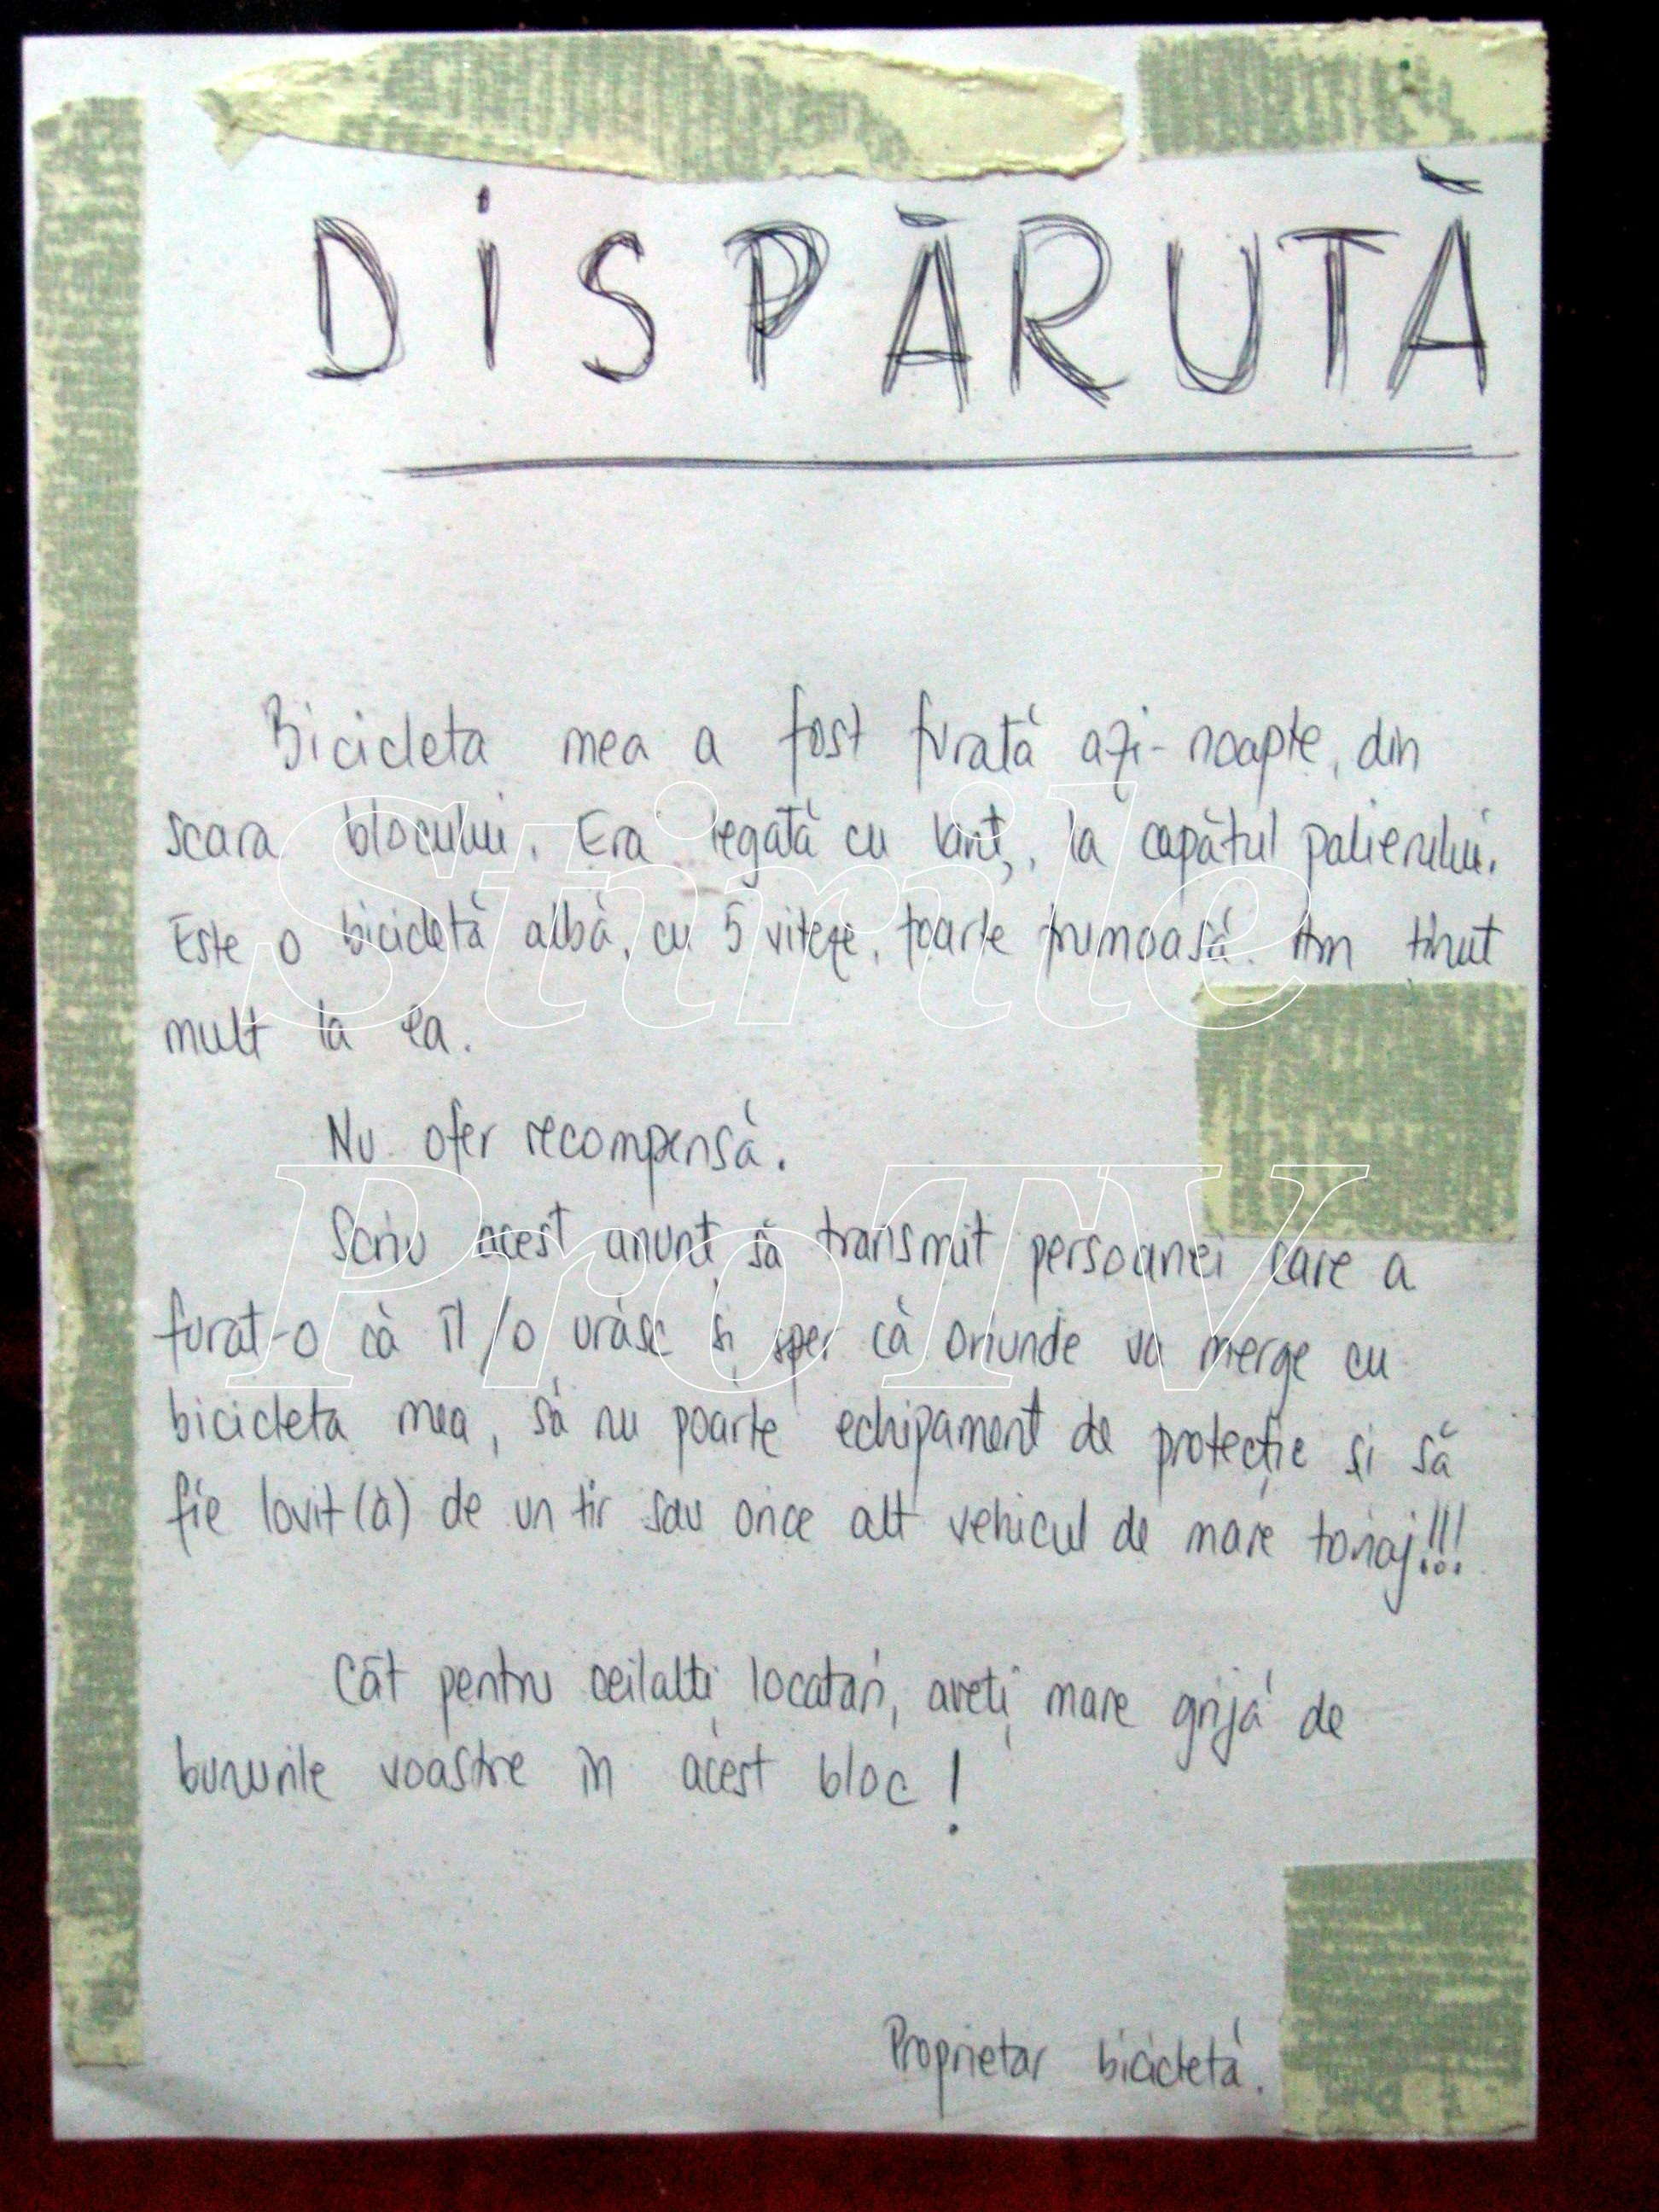 DISPĂRUTĂ
Bicicleta mea a fost furată azi-noapte, din
scara blocului. Era legată cu lanț, la capătul palierului.
Este o bicicletă albă, cu 5 viteze, foarte frumoasă. Am ținut
mult la ea.
Nu ofer recompensă.
Scriu acest anunț să transmit persoanei care a
furat-o că îl/o urăsc și sper că oriunde va merge cu
bicicleta mea, să nu poarte echipament de protecție și să
fie lovit(ă) de un tir sau orice alt vehicul de mare tonaj!!!
Cât pentru ceilalți locatari, aveți mare grijă de
bunurile voastre în acest bloc!
Proprietar bicicletă.
Stirile
ProTV